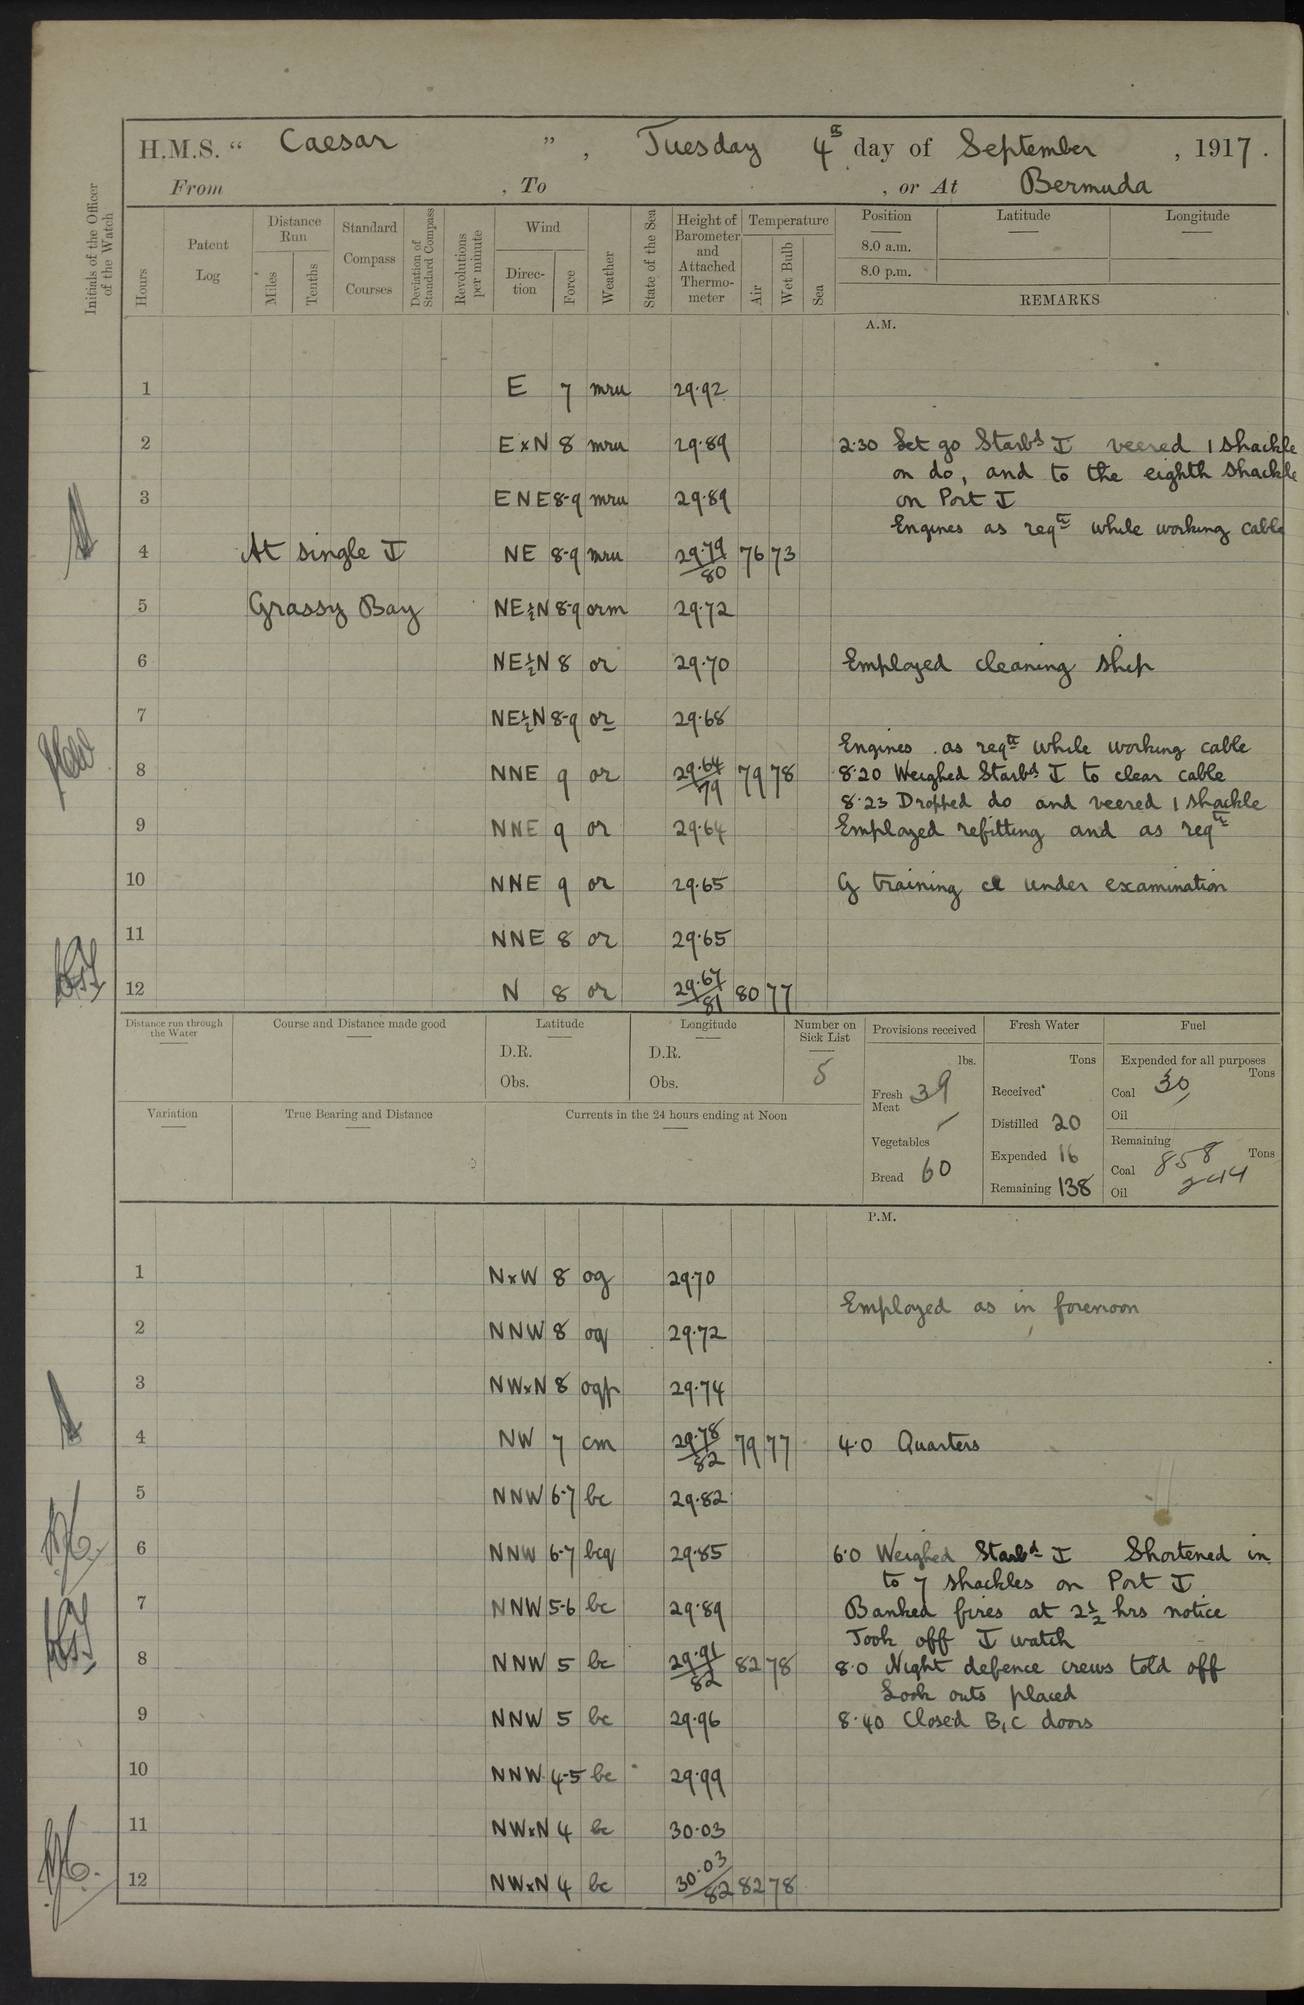 H.M.S. “ Caesar ” , Tuesday 4th day of September , 1917 .
From , To , or At Bermuda
Initials of the Officer of the Watch
Hours
Patent Log
Distance Run
Miles
Tenths
Standard Compass Courses
Deviation of Standard Compass
Revolutions per minute
Wind
Direction
Force
Weather
State of the Sea
Height of Barometer and Attached Thermometer
Temperature
Air
Wet Bulb
Sea
Position
Latitude
Longitude
8.0 a.m.
8.0 p.m.
REMARKS
A.M.
1 E 7 mru 29.92
2 E x N 8 mru 29.89 2.30 Let go Starbd I veered 1 shackle
on do, and to the eighth shackle
3 E N E 8-9 mru 29.89 on Port I
Engines as reqte while working cable
4 At single I NE 8-9 mru 29.79/80 76 73
5 Grassy Bay NE½N 8-9 orm 29.72
6 NE½N 8 or 29.70 Employed cleaning ship
7 NE½N 8-9 or 29.68
Engines as reqte while working cable
8 NNE 9 or 29.64/79 79 78 8.20 Weighed Starbd I to clear cable
8.23 Dropped do and veered 1 shackle
9 NNE 9 or 29.64 Employed refitting and as reqte
10 NNE 9 or 29.65 G training cl under examination
11 NNE 8 or 29.65
12 N 8 or 29.67/81 80 77
Distance run through the Water
Course and Distance made good
Latitude
D.R.
Obs.
Longitude
D.R.
Obs.
Number on Sick List
5
Provisions received
lbs.
Fresh Meat 39
Vegetables /
Bread 60
Fresh Water
Tons
Received
Distilled 20
Expended 16
Remaining 138
Fuel
Expended for all purposes
Tons
Coal 30
Oil
Remaining
Tons
Coal 858
Oil 244
Variation
True Bearing and Distance
Currents in the 24 hours ending at Noon
P.M.
1 NxW 8 og 29.70
Employed as in forenoon
2 NNW 8 oq 29.72
3 NWxN 8 oqp 29.74
4 NW 7 cm 29.78/82 79 77 4.0 Quarters
5 NNW 6-7 bc 29.82
6 NNW 6-7 bcq 29.85 6.0 Weighed Starbd I Shortened in
to 7 shackles on Port I
7 NNW 5-6 bc 29.89 Banked fires at 2½ hrs notice
Took off I watch
8 NNW 5 bc 29.91/82 82 78 8.0 Night defence crews told off
Look outs placed
9 NNW 5 bc 29.96 8.40 Closed B,C doors
10 NNW 4-5 bc 29.99
11 NWxN 4 bc 30.03
12 NWxN 4 bc 30.03/82 82 78